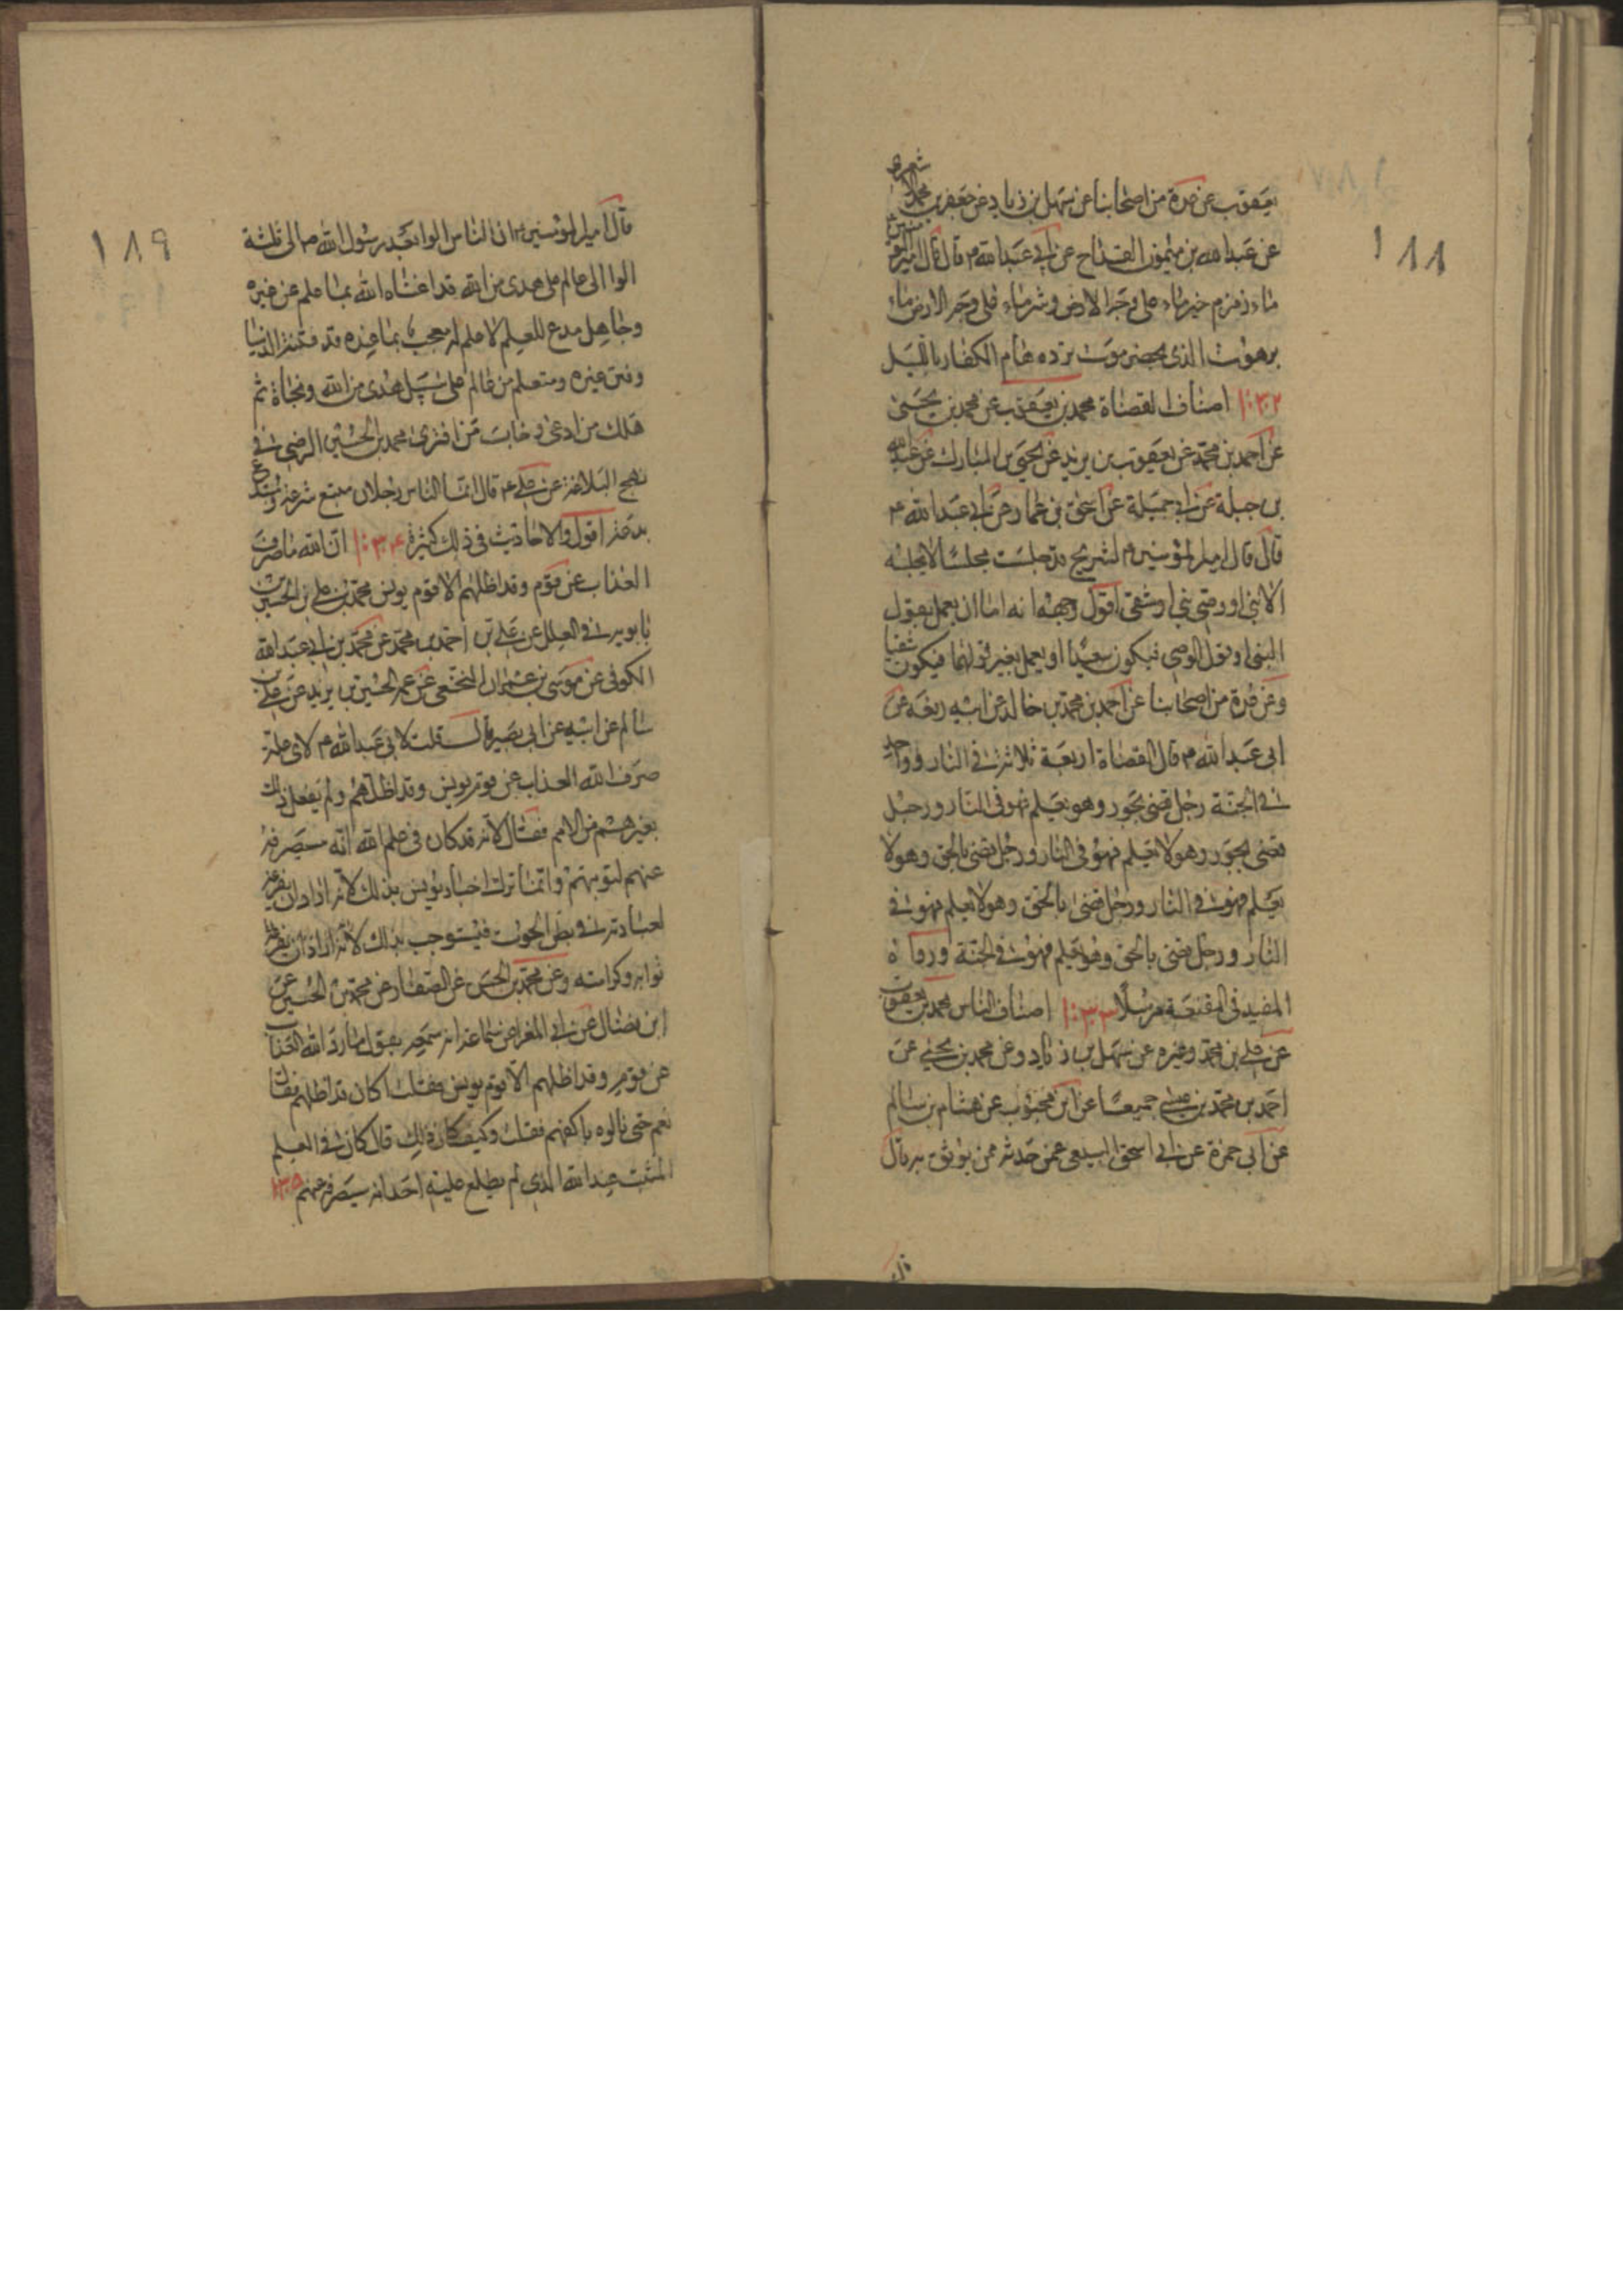 ١٨٨
يعقوب عن عدة من اصحابنا عن سهل بن زياد عن جعفر بن محمد الاشعرى
عن عبد الله بن ميمون القداح عن ابي عبد الله ع قال قال امير المؤمنين ع
ماء زمزم خير ماء على وجه الارض وشر ماء على وجه الارض ماء
برهوت الذى بحضرموت ترده هام الكفار بالليل
١٠٣٢ اصناف القضاة محمد بن يعقوب عن محمد بن يحيى
عن احمد بن محمد عن يعقوب بن يزيد عن يحيى بن المبارك عن عبد الله
بن جبلة عن ابي جميلة عن اسحق بن عمار عن ابي عبد الله ع
قال قال امير المؤمنين ع لشريح قد جلست مجلسا لا يجلسه
الا نبى او وصى نبى او شقى اقول وجهه انه اما ان يعمل بقول
النبى او بقول الوصى فيكون سعيدا او يعمل بغير قولهما فيكون شقيا
وعن عدة من اصحابنا عن احمد بن محمد بن خالد عن ابيه رفعه عن
ابى عبد الله ع قال القضاة اربعة ثلاثة في النار وواحد
في الجنة رجل قضى بجور وهو يعلم فهو فى النار ورجل
قضى بجور وهو لا يعلم فهو فى النار ورجل قضى بالحق وهو لا
يعلم فهو في النار ورجل قضى بالحق وهو لا يعلم فهو في
النار ورجل قضى بالحق وهو يعلم فهو في الجنة ورواه
المفيد فى المقنعة مرسلا ١٠٣٣ اصناف الناس محمد بن يعقوب
عن علي بن محمد وغيره عن سهل بن زياد وعن محمد بن يحيي عن
احمد بن محمد بن عيسي جميعا عن ابن محبوب عن هشام بن سالم
عن ابى حمزة عن ابي اسحق السبيعى عمن حدثه ممن يوثق به قال
قال
١٨٩
قال امير المؤمنين ع ان الناس الوا بعد رسول الله ص الى ثلثة
الوا الى عالم على هدى من الله قد اغناه الله بما علم عن غيره
وجاهل مدع للعلم لا علم له معجب بما عنده قد فتنته الدنيا
وفتن غيره ومتعلم من عالم على سبيل هدى من الله ونجاة ثم
هلك من ادعى وخاب من افترى محمد بن الحسين الرضى في
نهج البلاغة عن علي ع قال انما الناس رجلان متبع شرعة ومبتدع
بدعة اقول والاحاديث فى ذلك كثيرة ١٠٣٤ ان الله ما صرف
العذاب عن قوم وقد اظلهم الا قوم يونس محمد بن علي بن الحسين بن
بابويه في العلل عن علي بن احمد بن محمد عن محمد بن ابي عبد الله
الكوفى عن موسى بن عمران النخعى عن عمه الحسين بن يزيد عن علي بن
سالم عن ابيه عن ابى بصير قال قلت لابى عبد الله ع لاى علة
صرف الله العذاب عن قوم يونس وقد اظلهم ولم يفعل ذلك
بغيرهم من الامم فقال لانه قد كان فى علم الله انه سيصرفه
عنهم لتوبتهم وانما ترك اخبار يونس بذلك لانه اراد ان يفرغه
لعبادته في بطن الحوت فيستوجب بذلك
ثوابه وكرامته وعن محمد بن الحسن عن الصفار عن محمد بن الحسين عن
ابن فضال عن ابي المغرا عن سماعة انه سمعه يقول ما رد الله العذاب
عن قوم وقد اظلهم الا قوم يونس فقلت اكان قد اظلهم فقال
نعم حتى نالوه باكفهم فقلت وكيف كان ذلك قال كان في العلم
المثبت عند الله الذى لم يطلع عليه احد انه سيصرفه عنهم ١٠٣٥